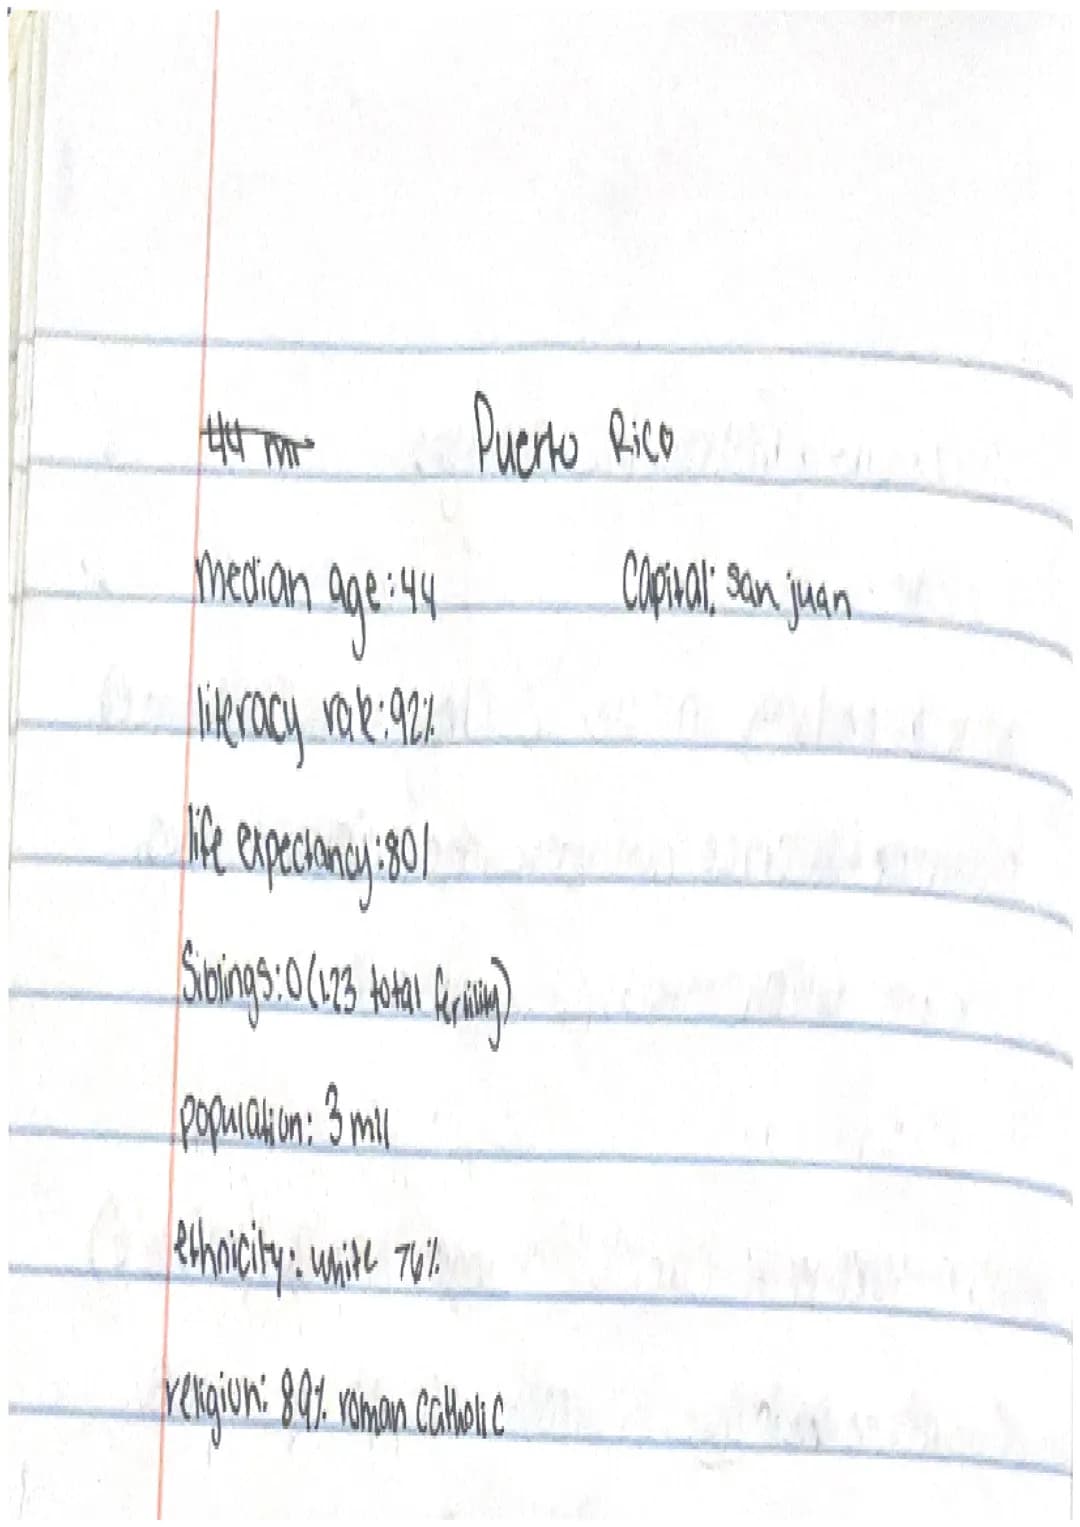 Puerto Rico
median age: 44 Capital: San juan
literacy rate: 92%
life expectancy: 80
Siblings: 0 (1.23 total fertility)
population: 3 mil
ethnicity: white 76%
religion: 89% roman Catholic